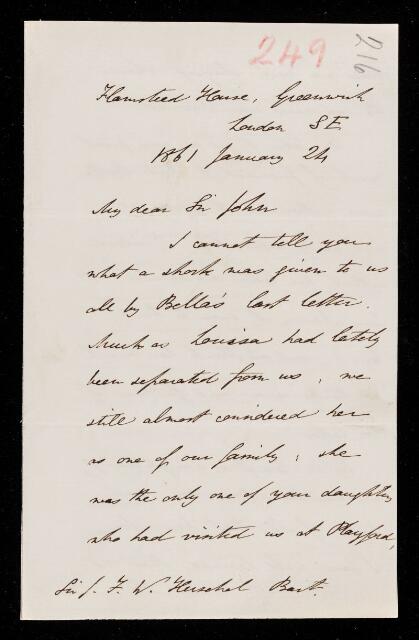 249
216
Flamsteed House, Greenwich
London S.E.
1861 January 24
My dear Sir John
I cannot tell you
what a shock was given to us
all by Bella's last letter.
Much as Louisa had lately
been separated from us, we
still almost considered her
as one of our family; she
was the only one of your daughters
who had visited us at Playford,
Sir J. F. W. Herschel Bart.